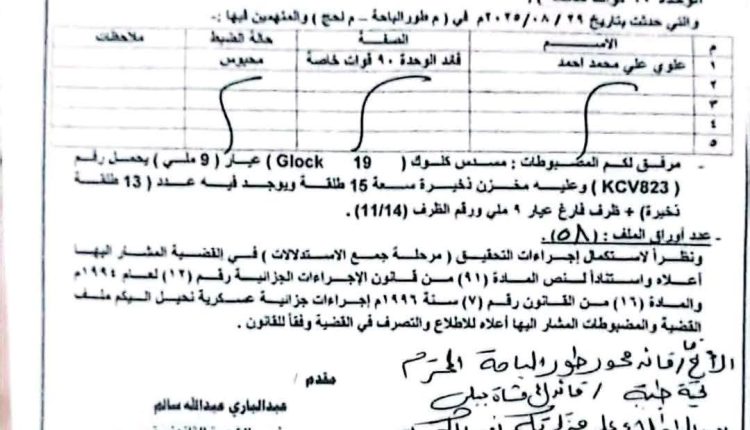 والتي حدثت بتاريخ ٢٩ / ٠٨ / ٢٠٢٥م في ( م طور الباحة – م لحج ) والمتهمين فيها :-
م الاســـم الصفـة حالة الضبط ملاحظات
١ علوي علي محمد احمد قائد الوحدة ٩٠ قوات خاصة محبوس
٢
٣
٤
٥
- مرفق لكم المضبوطات : مسدس كلوك ( Glock 19 ) عيار ( 9 ملي ) يحمل رقم
( KCV823 ) وعليه مخزن ذخيرة سعة 15 طلقة ويوجد فيه عدد ( 13 طلقة
ذخيرة) + ظرف فارغ عيار ٩ ملي ورقم الظرف (11/14).
- عدد أوراق الملف : (٥٨).
ونظراً لاستكمال إجراءات التحقيق ( مرحلة جمع الاستدلالات ) في القضية المشار اليها
أعلاه واستناداً لنص المادة (٩١) من قانون الإجراءات الجزائية رقم (١٢) لعام ١٩٩٤م
والمادة (١٦) من القانون رقم (٧) سنة ١٩٩٦م إجراءات جزائية عسكرية نحيل اليكم ملف
القضية والمضبوطات المشار اليها أعلاه للاطلاع والتصرف في القضية وفقاً للقانون .
الأخ / قائد محور طور الباحة المحترم
مقدم /
تحية طيبة /
عبدالباري عبدالله سالم